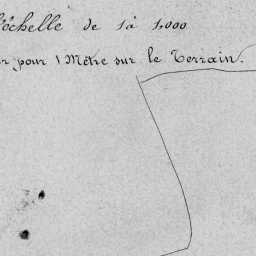 l'échelle de 1 à 1.000
pour 1 Mètre sur le Terrain.